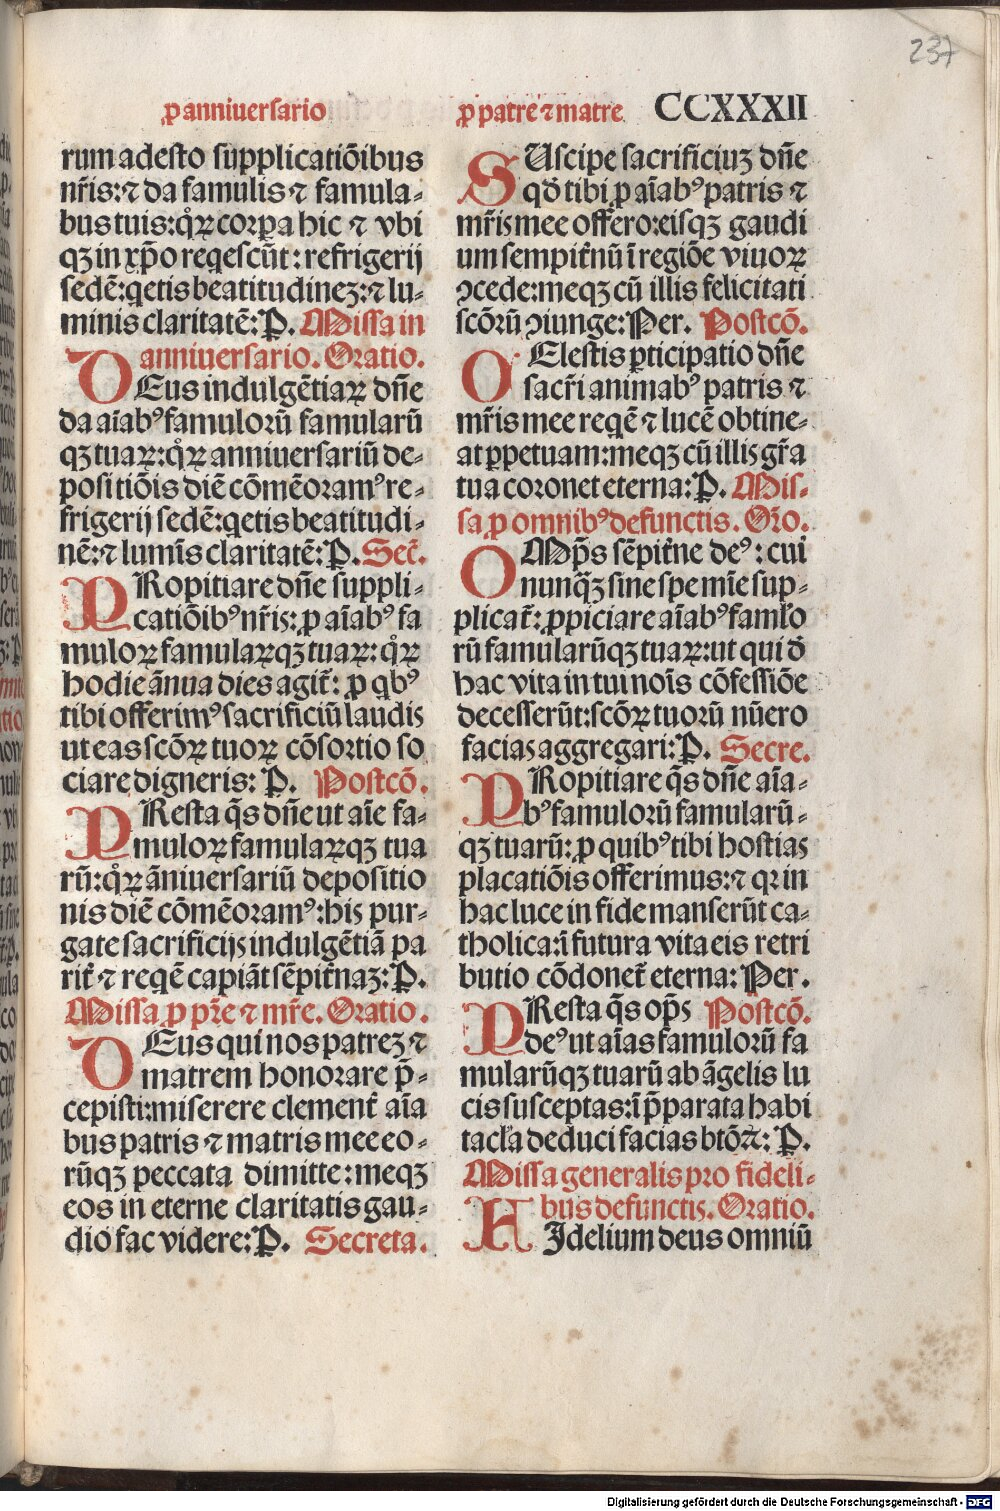 237
ꝓ anniuersario
ꝓ patre ⁊ matre CCXXXII
rum adesto supplicatiōibus
nr̄is: ⁊ da famulis ⁊ famula⸗
bus tuis: qͦꝝ corꝑa hic ⁊ vbi
qꝫ in xp̄o reqescūt: refrigerij
sedē: qetis beatitudinez: ⁊ lu⸗
minis claritatē: P̱. Missa in
anniuersario. Oratio.
DEus indulgētiaꝝ dn̄e
da aīabꝰ famulorū famularū
qꝫ tuaꝝ: qͦꝝ anniuersariū de⸗
positiōis diē cōmēoramꝰ re⸗
frigerij sedē: qetis beatitudi⸗
nē: ⁊ lumīs claritatē: P̱. Sec̄.
PRopitiare dn̄e suppli⸗
catiōibꝰ nr̄is: ꝓ aīabꝰ fa
muloꝝ famulaꝝqꝫ tuaꝝ: qͦꝝ
hodie ānua dies agit̄: ꝓ qbꝰ
tibi offerimꝰ sacrificiū laudis
ut eas scōꝝ tuoꝝ cōsortio so
ciare digneris: P̱. Postcō.
PResta q̄s dn̄e ut aīe fa⸗
muloꝝ famulaꝝqꝫ tua
rū: qͦꝝ āniuersariū depositio
nis diē cōmēoramꝰ: his pur⸗
gate sacrificijs indulgētiā pa
rit̄ ⁊ reqē capiāt sēpit̄naz: P̱.
Missa ꝓ pr̄e ⁊ mr̄e. Oratio.
DEus qui nos patrez ⁊
matrem honorare p̄⸗
cepisti: miserere clement̄ aīa
bus patris ⁊ matris mee eo⸗
rūqꝫ peccata dimitte: meqꝫ
eos in eterne claritatis gau⸗
dio fac videre: P̱. Secreta.
SUscipe sacrificiuz dn̄e
qd̄ tibi ꝓ aīabꝰ patris ⁊
mr̄is mee offero: eisqꝫ gaudi
um sempit̄nū ī regiōe viuoꝝ
ꝯcede: meqꝫ cū illis felicitati
scōrū ꝯiunge: Per. Postcō.
CElestis ꝑticipatio dn̄e
sacr̄i animabꝰ patris ⁊
mr̄is mee reqē ⁊ lucē obtine⸗
at ꝑpetuam: meqꝫ cū illis gr̄a
tua coronet eterna: P̱. Mis⸗
sa ꝓ omnibꝰ defunctis. Or̄o.
OMp̄s sēpit̄ne deꝰ: cui
nunq̄ꝫ sine spe mīe sup⸗
plicat̄: ꝓpiciare aīabꝰ famlo
rū famularūqꝫ tuaꝝ: ut qui d̄
hac vita in tui noīs cōfessiōe
decesserūt: scōꝝ tuorū nūero
facias aggregari: P̱. Secre.
PRopitiare q̄s dn̄e aīa⸗
bꝰ famulorū famularū⸗
qꝫ tuarū: ꝓ quibꝰ tibi hostias
placatiōis offerimus: ⁊ qꝛ in
hac luce in fide manserūt ca⸗
tholica: ī futura vita eis retri
butio cōdonet̄ eterna: Per.
PResta q̄s op̄s Postcō.
deꝰ ut aīas famulorū fa
mularūqꝫ tuarū ab āgelis lu
cis susceptas: ī p̄parata habi
tacl̄a deduci facias btōꝝ: P̱.
Missa generalis pro fideli⸗
bus defunctis. Oratio.
FIdelium deus omniū
Digitalisierung gefördert durch die Deutsche Forschungsgemeinschaft - DFG